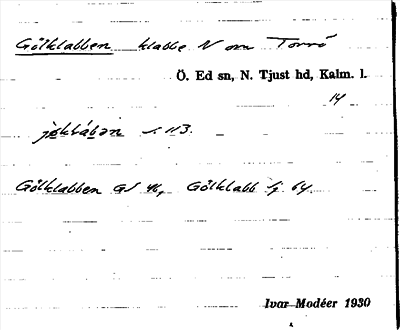 Gölklabben klabbe N om Torrö
Ö. Ed sn, N. Tjust hd, Kalm. l.
14
s. 113.
Gölklabben GS 46, Gölklabb Sj. 64.
Ivar Modéer 1930